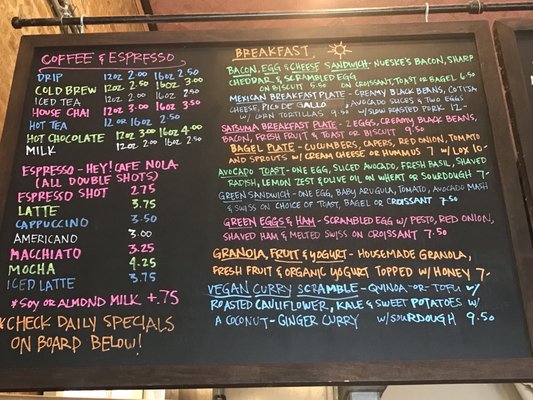 COFFEE & ESPRESSO
DRIP 12oz 2.00 16oz 2.50
COLD BREW 12oz 2.50 16oz 3.00
ICED TEA 12oz 2.00 16oz 2.50
HOUSE CHAI 12oz 3.00 16oz 3.50
HOT TEA 12 OR 16oz 2.50
HOT CHOCOLATE 12oz 3.00 16oz 4.00
MILK 12oz 2.00 16oz 2.50
ESPRESSO - HEY! CAFE NOLA
(ALL DOUBLE SHOTS)
ESPRESSO SHOT 2.75
LATTE 3.75
CAPPUCCINO 3.50
AMERICANO 3.00
MACCHIATO 3.25
MOCHA 4.25
ICED LATTE 3.75
*SOY OR ALMOND MILK +.75
*CHECK DAILY SPECIALS
ON BOARD BELOW!
BREAKFAST
BACON, EGG & CHEESE SANDWICH - NUESKE'S BACON, SHARP
CHEDDAR, & SCRAMBLED EGG
ON BISCUIT 5.50 ON CROISSANT, TOAST OR BAGEL 6.50
MEXICAN BREAKFAST PLATE - CREAMY BLACK BEANS, COTIJA
CHEESE PICO DE GALLO, AVOCADO SLICES & TWO EGGS
W/ CORN TORTILLAS 9.50 W/ SLOW ROASTED PORK 12-
SATSUMA BREAKFAST PLATE - 2 EGGS, CREAMY BLACK BEANS,
BACON, FRESH FRUIT & TOAST OR BISCUIT 9.50
BAGEL PLATE - CUCUMBERS, CAPERS, RED ONION, TOMATO
AND SPROUTS W/ CREAM CHEESE OR HUMMUS 7 W/ LOX 10-
AVOCADO TOAST - ONE EGG, SLICED AVOCADO, FRESH BASIL, SHAVED
RADISH, LEMON ZEST & OLIVE OIL ON WHEAT OR SOURDOUGH 7-
GREEN SANDWICH - ONE EGG, BABY ARUGULA, TOMATO, AVOCADO MASH
& SWISS ON CHOICE OF TOAST, BAGEL OR CROISSANT 7.50
GREEN EGGS & HAM - SCRAMBLED EGG W/ PESTO, RED ONION,
SHAVED HAM & MELTED SWISS ON CROISSANT 7.50
GRANOLA, FRUIT & YOGURT - HOUSEMADE GRANOLA,
FRESH FRUIT & ORGANIC YOGURT TOPPED W/ HONEY 7-
VEGAN CURRY SCRAMBLE - QUINOA OR TOFU W/
ROASTED CAULIFLOWER, KALE & SWEET POTATOES W/
A COCONUT-GINGER CURRY W/ SOURDOUGH 9.50